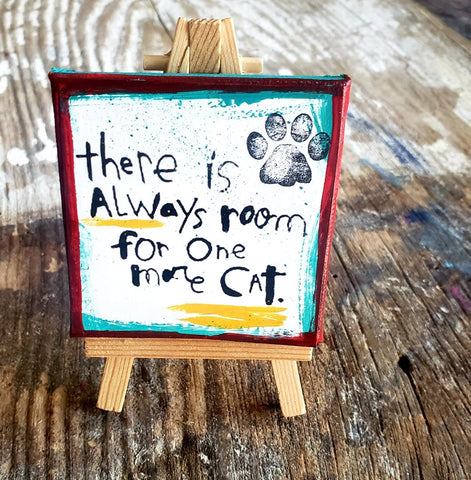 there is
ALWAys room
for One
more CAT.